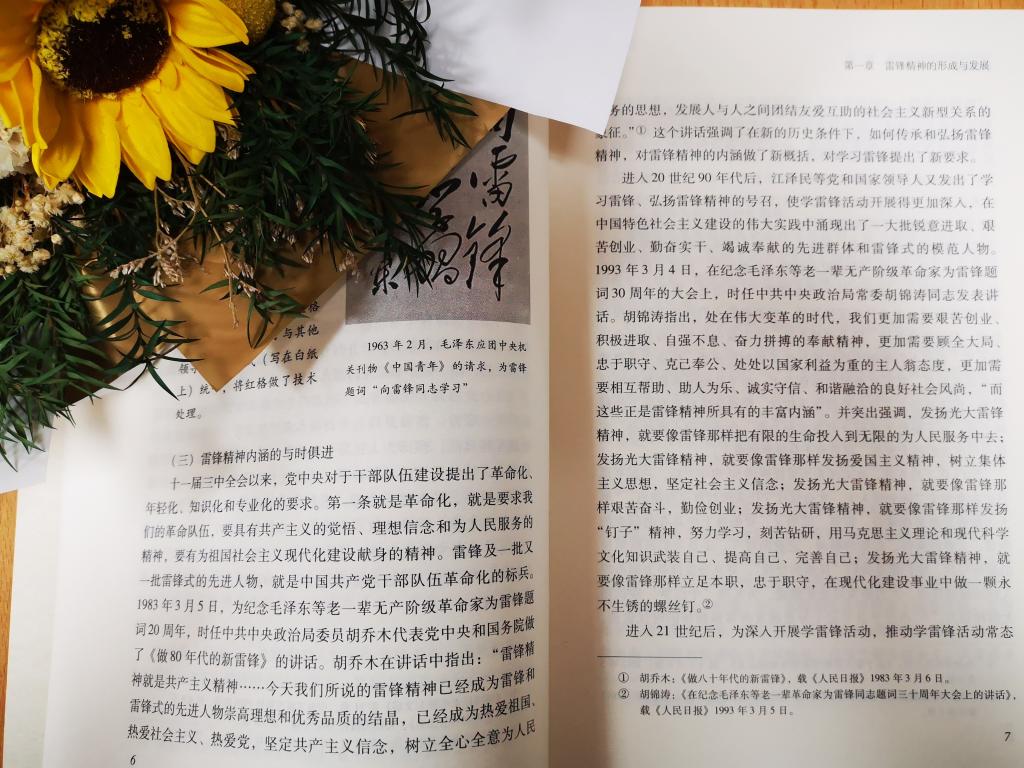 雷锋
格
,与其他
(写在白纸
上)统一,将红格做了技术
处理。
1963 年 2 月,毛泽东应团中央机
关刊物《中国青年》的请求,为雷锋
题词“向雷锋同志学习”
(三)雷锋精神内涵的与时俱进
十一届三中全会以来,党中央对于干部队伍建设提出了革命化、
年轻化、知识化和专业化的要求。第一条就是革命化,就是要求我
们的革命队伍,要具有共产主义的觉悟、理想信念和为人民服务的
精神,要有为祖国社会主义现代化建设献身的精神。雷锋及一批又
一批雷锋式的先进人物,就是中国共产党干部队伍革命化的标兵。
1983 年 3 月 5 日,为纪念毛泽东等老一辈无产阶级革命家为雷锋题
词 20 周年,时任中共中央政治局委员胡乔木代表党中央和国务院做
了《做 80 年代的新雷锋》的讲话。胡乔木在讲话中指出:“雷锋精
神就是共产主义精神……今天我们所说的雷锋精神已经成为雷锋和
雷锋式的先进人物崇高理想和优秀品质的结晶,已经成为热爱祖国、
热爱社会主义、热爱党,坚定共产主义信念,树立全心全意为人民
6
第一章 雷锋精神的形成与发展
务的思想,发展人与人之间团结友爱互助的社会主义新型关系的
象征。”① 这个讲话强调了在新的历史条件下,如何传承和弘扬雷锋
精神,对雷锋精神的内涵做了新概括,对学习雷锋提出了新要求。
进入 20 世纪 90 年代后,江泽民等党和国家领导人又发出了学
习雷锋、弘扬雷锋精神的号召,使学雷锋活动开展得更加深入,在
中国特色社会主义建设的伟大实践中涌现出了一大批锐意进取、艰
苦创业、勤奋实干、竭诚奉献的先进群体和雷锋式的模范人物。
1993 年 3 月 4 日,在纪念毛泽东等老一辈无产阶级革命家为雷锋题
词 30 周年的大会上,时任中共中央政治局常委胡锦涛同志发表讲
话。胡锦涛指出,处在伟大变革的时代,我们更加需要艰苦创业、
积极进取、自强不息、奋力拼搏的奉献精神,更加需要顾全大局、
忠于职守、克己奉公、处处以国家利益为重的主人翁态度,更加需
要相互帮助、助人为乐、诚实守信、和谐融洽的良好社会风尚,“而
这些正是雷锋精神所具有的丰富内涵”。并突出强调,发扬光大雷锋
精神,就要像雷锋那样把有限的生命投入到无限的为人民服务中去;
发扬光大雷锋精神,就要像雷锋那样发扬爱国主义精神,树立集体
主义思想,坚定社会主义信念;发扬光大雷锋精神,就要像雷锋那
样艰苦奋斗,勤俭创业;发扬光大雷锋精神,就要像雷锋那样发扬
“钉子”精神,努力学习,刻苦钻研,用马克思主义理论和现代科学
文化知识武装自己、提高自己、完善自己;发扬光大雷锋精神,就
要像雷锋那样立足本职,忠于职守,在现代化建设事业中做一颗永
不生锈的螺丝钉。②
进入 21 世纪后,为深入开展学雷锋活动,推动学雷锋活动常态
① 胡乔木:《做八十年代的新雷锋》,载《人民日报》1983 年 3 月 6 日。
② 胡锦涛:《在纪念毛泽东等老一辈革命家为雷锋同志题词三十周年大会上的讲话》,
载《人民日报》1993 年 3 月 5 日。
7